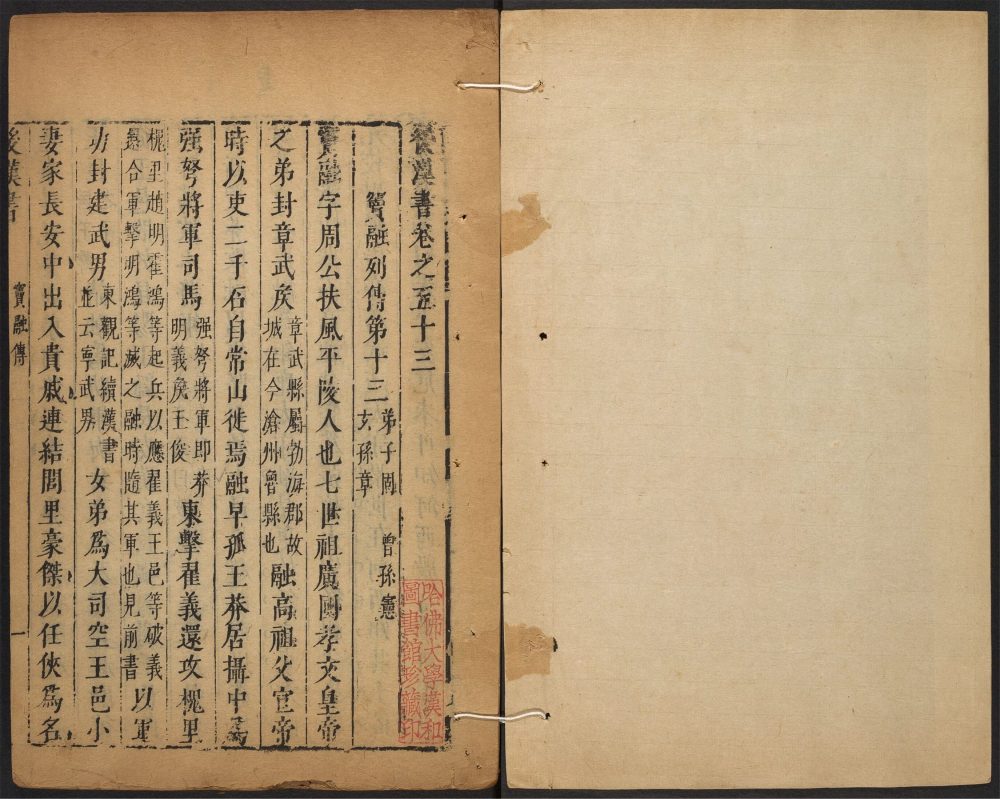 後漢書卷之五十三
竇融列傳第十三 弟子固 曾孫憲 玄孫章
竇融字周公扶風平陵人也七世祖廣國孝文皇帝
之弟封章武矦 章武縣屬勃海郡故城在今滄州魯縣也 融高祖父宣帝
時以吏二千石自常山徙焉融早孤王莽居攝中為
强弩將軍司馬 强弩將軍即莽明義矦王俊 東擊翟義還攻槐里
槐里趙明霍鴻等起兵以應翟義王邑等破義還合軍擊明鴻等滅之融時隨其軍也見前書 以軍
功封建武男 東觀記續漢書並云寧武男 女弟為大司空王邑小
妻家長安中出入貴戚連結閭里豪傑以任俠為名
後漢書
竇融傳
一
哈佛大學漢和
圖書館珍藏印